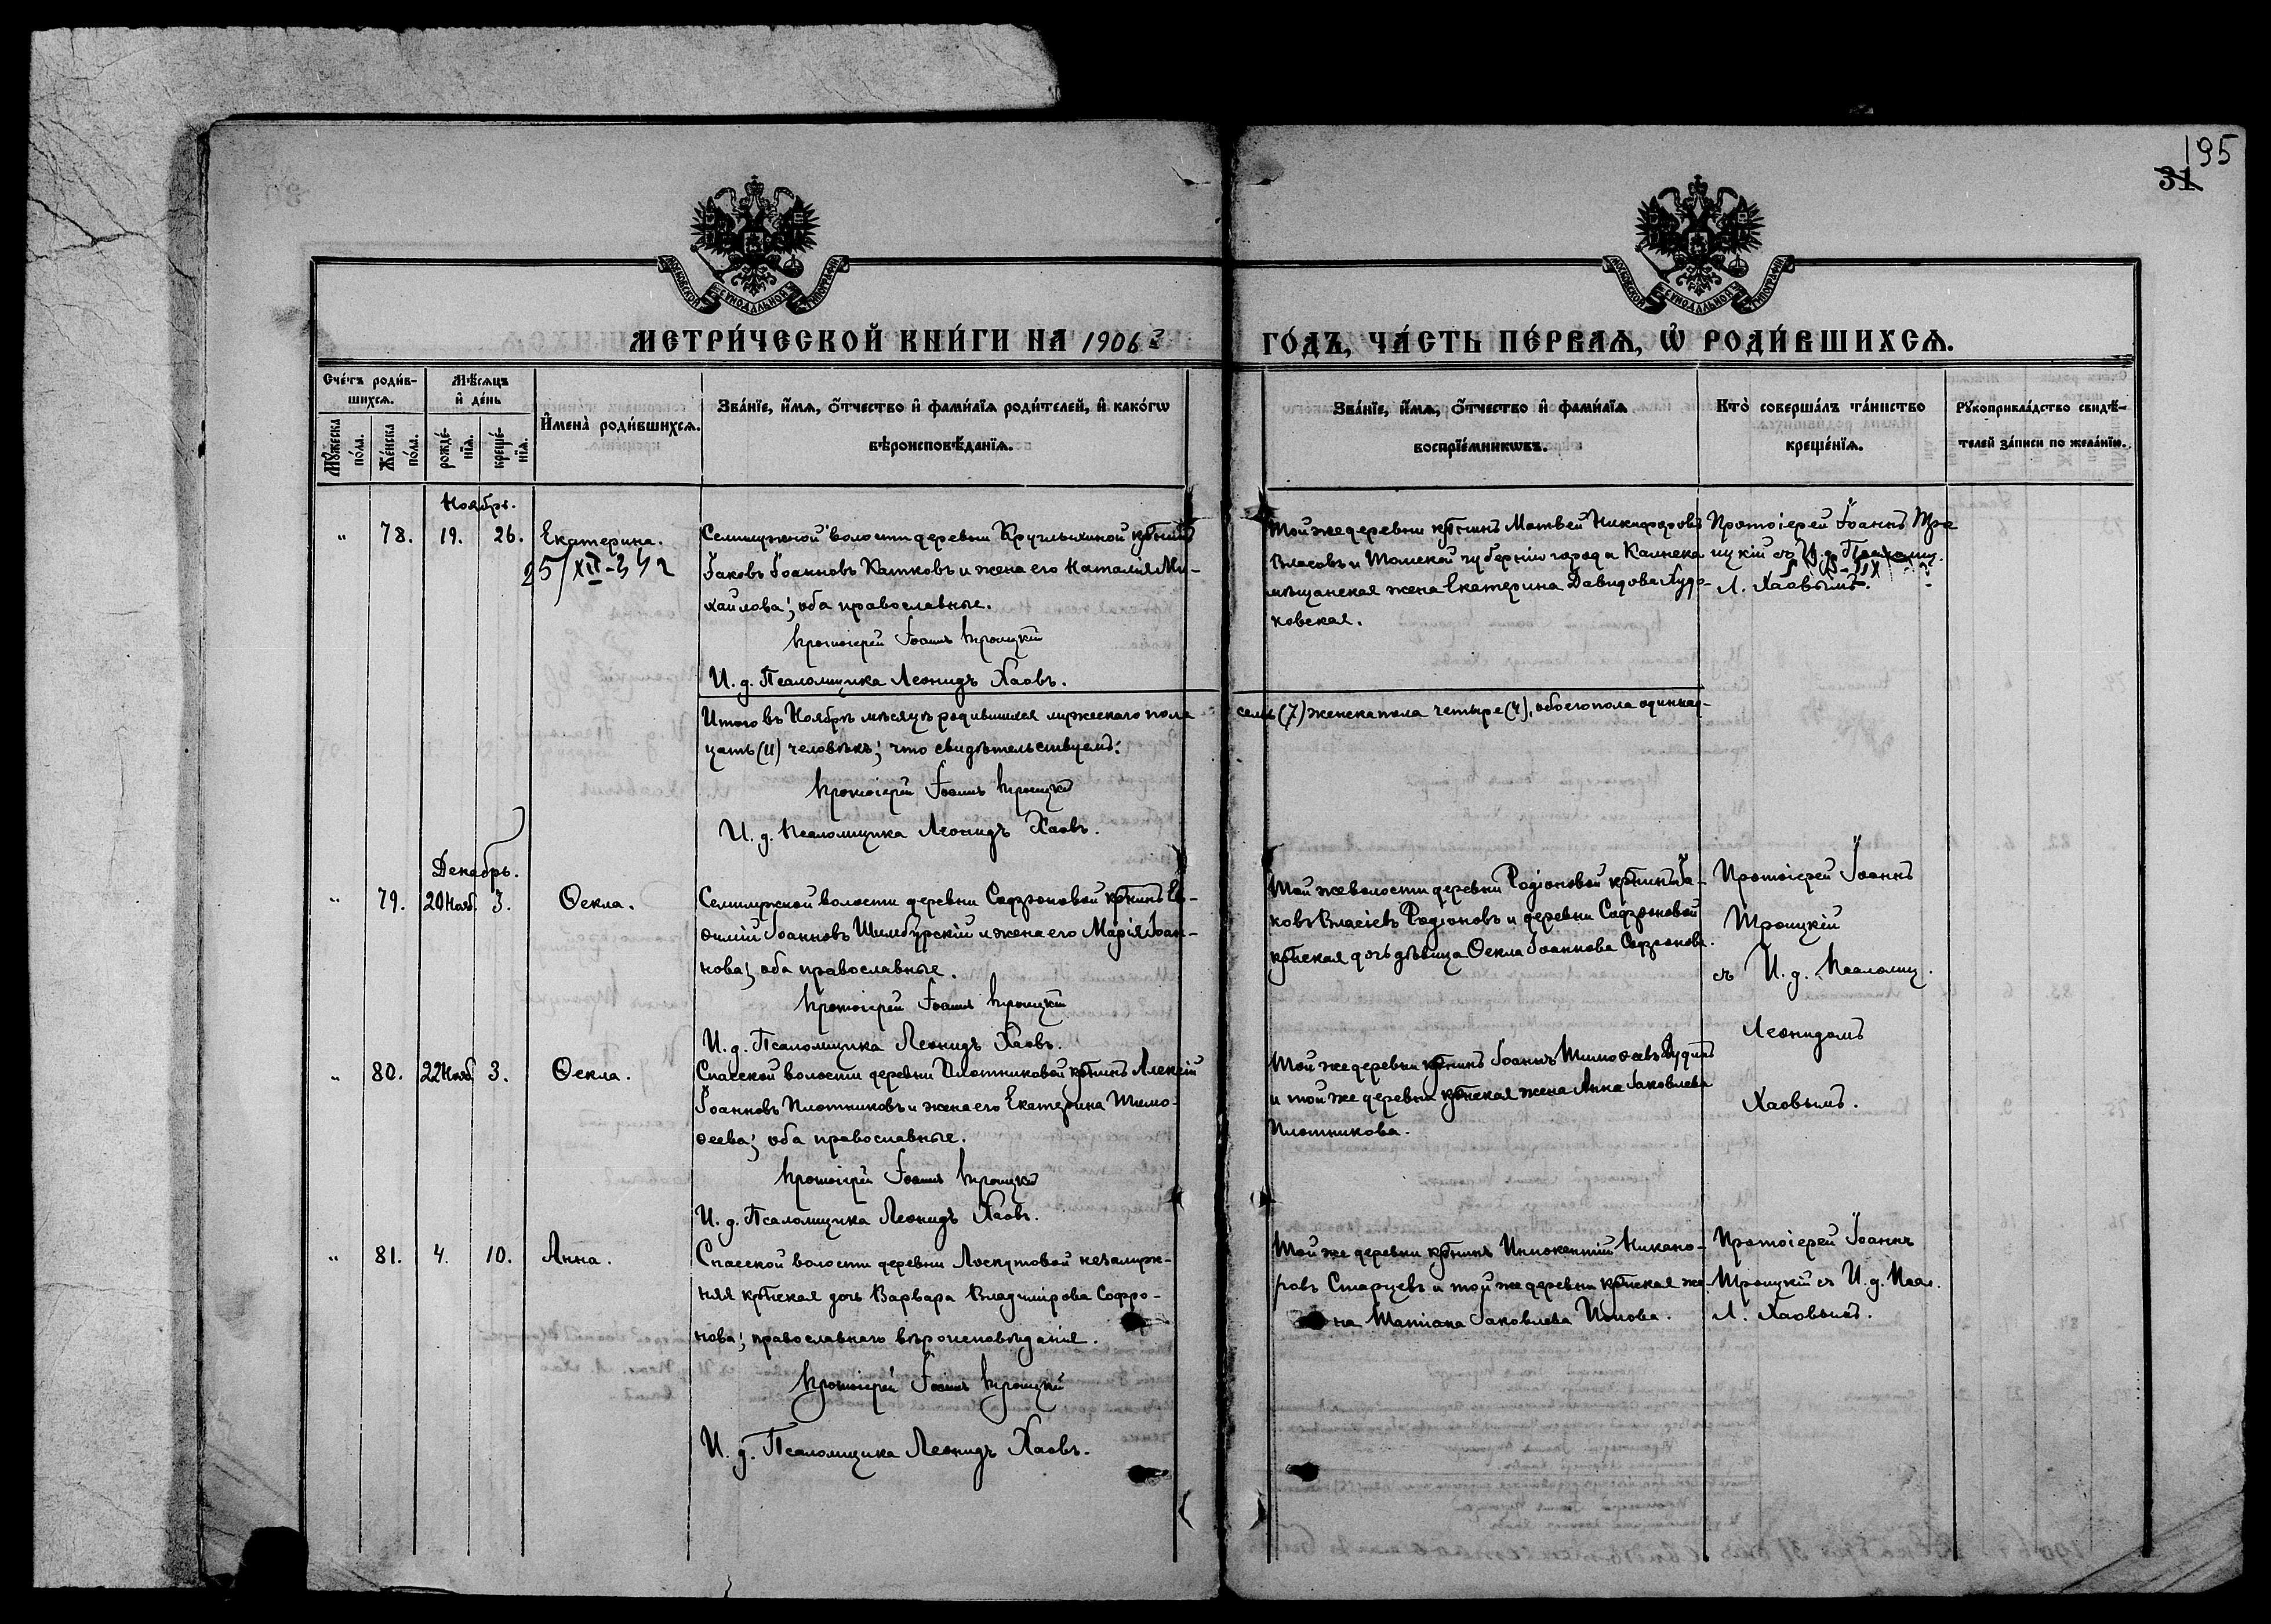 195
31
МОСКОВСКОЙ СѴНОДАЛЬНОЙ ТИПОГРАФІИ
МОСКОВСКОЙ СѴНОДАЛЬНОЙ ТИПОГРАФІИ
МЕТРИ́ЧЕСКОЙ КНИ́ГИ НА 1906 й
ГО́ДЪ, ЧА́СТЬ ПЕ́РВАѦ, Ѡ҆ РОДИ́ВШИХСѦ.
Сче́тъ роди́в-
шихсѧ.
Мꙋ́жеска по́ла.
Же́нска по́ла.
Мѣ́сѧцъ
и҆ де́нь
рожде́-
нїѧ.
креще́-
нїѧ.
И҆мена̀ роди́вшихсѧ.
Зва́нїе, и҆́мѧ, ѻ҆́тчество и҆ фами́лїѧ роди́телей, и҆ како́гѡ
вѣроисповѣ́данїѧ.
Зва́нїе, и҆́мѧ, ѻ҆́тчество и҆ фами́лїѧ
воспрїе́мникѡвъ.
Кто̀ соверша́лъ та́инство
креще́нїѧ.
Рꙋкоприкла́дство свидѣ́-
телей за́писи по жела́нїю.
Ноябрь.
" 78. 19. 26. Екатерина.
25/XII-342
Семилужной волости деревни Круглыхиной крстнинъ
Іаковъ Іоанновъ Катковъ и жена его Наталія Ми-
хаилова; оба православные.
Протоіерей Іоаннъ Троицкій
И. д. Псаломщика Леонидъ Хаовъ.
Той же деревни крстнинъ Матвей Никифоровъ
Власовъ и Томской губерніи города Каинска
мѣщанская жена Екатерина Давидова Худо-
ковская.
Протоіерей Іоаннъ Трои
цкій съ И. д. Псаломщ.
Л. Хаовымъ.
Итого въ Ноябрѣ мѣсяцѣ родившихся мужескаго пола
семь (7) женска пола четыре (4), обоего пола одиннад-
цать (11) человѣкъ; что свидѣтельствуемъ:
Протоіерей Іоаннъ Троицкій
И. д. Псаломщика Леонидъ Хаовъ.
Декабрь.
" 79. 20 Нояб. 3. Ѳекла.
Семилужской волости деревни Софроновой крстнинъ Ев-
ѳимій Іоанновъ Шимбурскій и жена его Марія Іоан-
нова; оба православные.
Протоіерей Іоаннъ Троицкій
И. д. Псаломщика Леонидъ Хаовъ.
Той же волости деревни Родіоновой крстнинъ Іа-
ковъ Власіевъ Родіоновъ и деревни Софроновой
крстнская дочь дѣвица Ѳекла Іоаннова Софронова.
Протоіерей Іоаннъ
Троицкій
съ И. д. Псаломщ.
Леонидомъ
Хаовымъ.
" 80. 22 Нояб. 3. Ѳекла.
Спасской волости деревни Плотниковой крстнинъ Алексій
Іоанновъ Плотниковъ и жена его Екатерина Тимо-
ѳеева; оба православные.
Протоіерей Іоаннъ Троицкій
И. д. Псаломщика Леонидъ Хаовъ.
Той же деревни крстнинъ Іоаннъ Тимоѳеевъ
и той же деревни крстнская жена Анна Іаковлева
Плотникова.
" 81. 4. 10. Анна.
Спасской волости деревни Лоскутовой незамуж-
няя крстнская дочь Варвара Владимірова Софро-
нова; православнаго вѣроисповѣданія.
Протоіерей Іоаннъ Троицкій
И. д. Псаломщика Леонидъ Хаовъ.
Той же деревни крстнинъ Иннокентій Никано-
ровъ Старцевъ и той же деревни крстнская же-
на Татіана Іаковлева Попова.
Протоіерей Іоаннъ
Троицкій съ И. д. Псал.
Л. Хаовымъ.